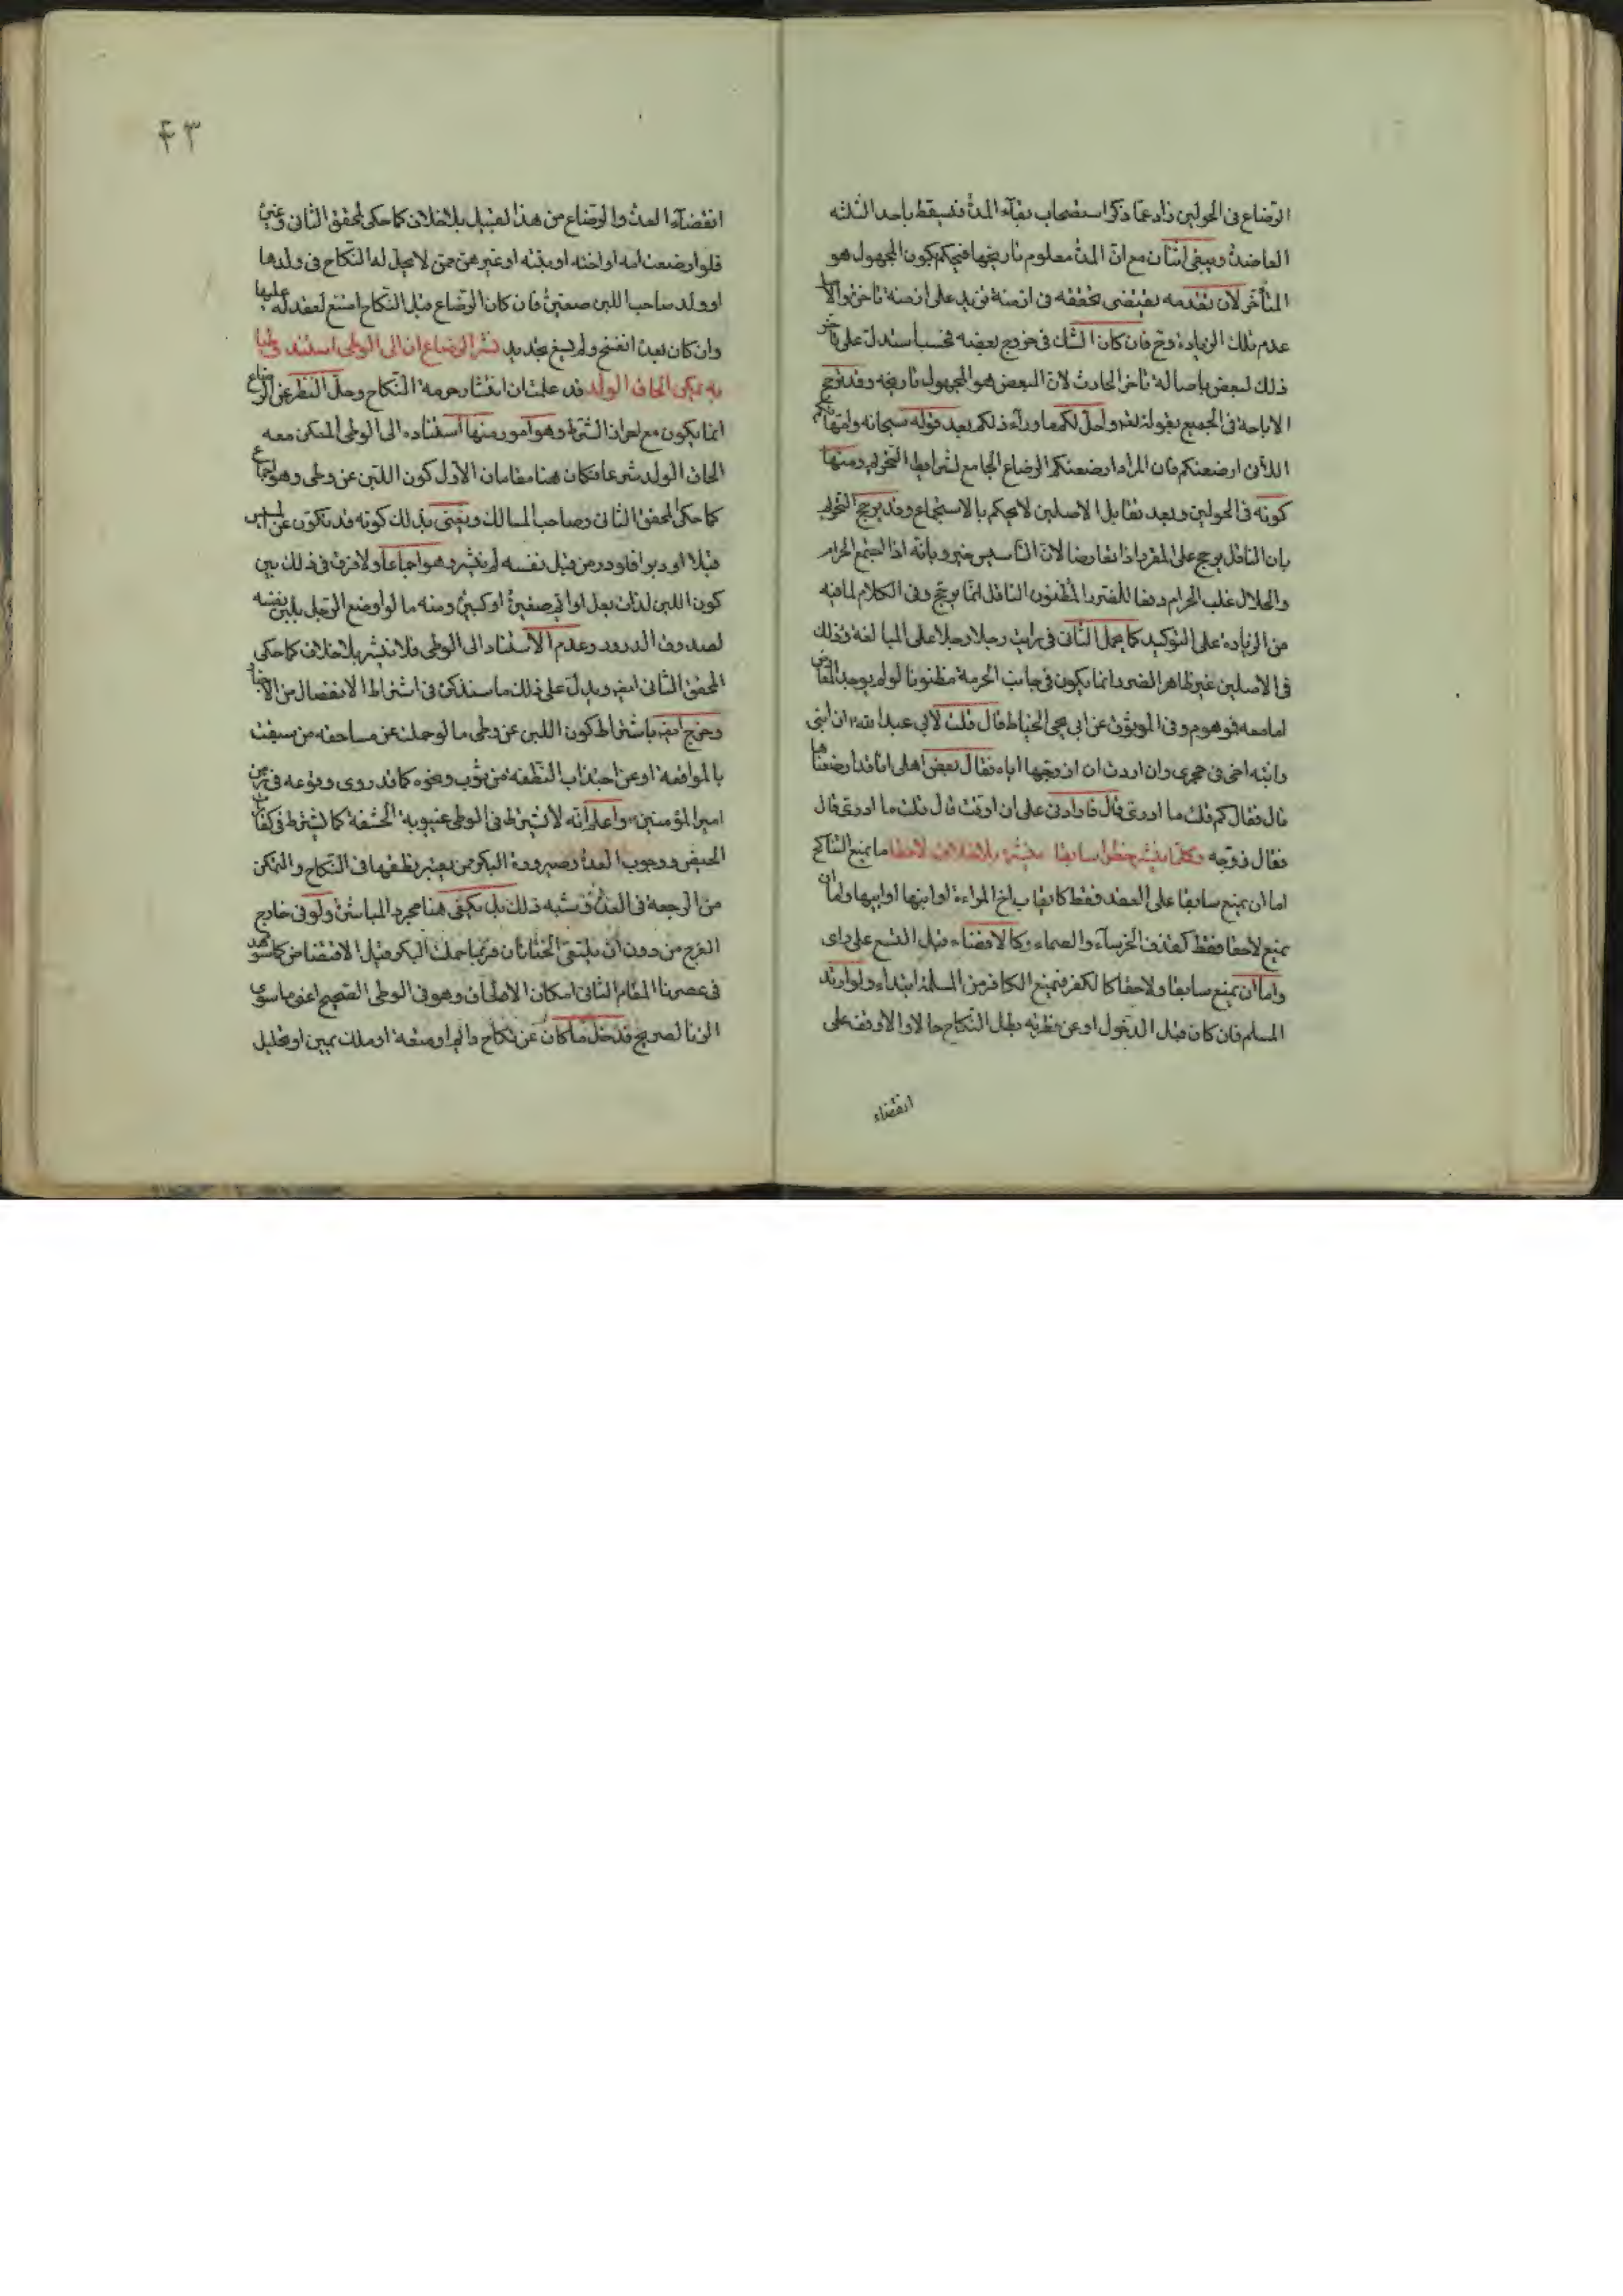 الرضاع فى الحولين زاد عما ذكر استصحاب بقآء المدة فيسقط باحد الثلثه
العاضدة ويبقى اثنان مع انّ المدة معلوم تاريخها فيحكم بكون المجهول هو
المتأخر لان تقدمه يقتضى تحققه فى ازمنة تزيد على ازمنة تاخره والاصل
عدم تلك الزيادة وح فان كان الشك فى خروج بعضه فحسب استدل على تاخر
ذلك البعض باصالة تاخر الحادث لان البعض هو المجهول تاريخه وقد ترجح
الاباحة فى الجميع بقوله تعم واحل لكم ما ورآء ذلكم بعد قوله سبحانه وامهاتكم
اللاتى ارضعنكم فان المراد ارضعنكم الرضاع الجامع لشرايط التحريم ومنها
كونه فى الحولين وبعد تقابل الاصلين لا يحكم بالاستجماع وقد يرجح التحريم
بان الناقل يرجح على المقرر اذا تعارضا لان التأسيس خير وبانه اذا اجتمع الحرام
والحلال غلب الحرام دفعا للضرر المظنون الناقل انما يرجح وفى الكلام لما فيه
من الزيادة على التوكيد كما يحمل الثانى فى رايت رجلا رجلا على المبالغة وذلك
فى الاصلين غير ظاهر الضرر انما يكون فى جانب الحرمة مظنونا لو لم يوجد المعارض
اما معه فموهوم وفى الموثوق عن ابى يحيى الحناط قال قلت لابى عبد الله ان ابنى
وابنه اخى فى حجرى وان اردت ان ازوجها اياه فقال بعض اهلى انا قد ارضعناهما
قال فقال كم قلت ما ادرى قال فادادنى على ان اوقت قال قلت ما ادرى قال
فقال زوّجه وكلما ينشر حظرا سابقا ينشره بلا خلاف لاحقا ما يمنع النكاح
اما ان يمنع سابقا على العقد فقط كايقاب اخ المراءة او ابنها او ابيها واما ان
يمنع لاحقا فقط كقذف الخرسآء والصماء وكالافضاء قبل التسع على راى
واما ان يمنع سابقا ولاحقا كالكفر فيمنع الكافر من المسلمة ابتداء ولو ارتد
المسلم فان كان قبل الدخول او عن فطرة بطل النكاح حالا والا وقف على
انقضاء
۴۳
انقضآء العدة والرضاع من هذا القبيل بلا خلاف كما حكى المحقق الثانى وغيره
فلو ارضعت امه او اخته او بنته او غيرهن ممن لا يحل له النكاح فى ولدها
او ولد صاحب اللبن صغيرة فان كان الرضاع قبل النكاح امتنع العقد له عليها
وان كان بعده انفسخ ولم يسغ تجديد نشر الرضاع ان الى الوطى استند وطيا
به يمكن الحاق الولد قد علمت ان انتشار حرمة النكاح وحل النظر عن الرضاع
انما يكون مع احراز الشرط وهو امور منها استناده الى الوطى الممكن معه
الحاق الولد شرعا فكان هنا مقامان الاول كون اللبن عن وطى وهو اجماع
كما حكى المحقق الثانى وصاحب المسالك ويعنى بذلك كونه قد تكون عن لمس
قبلا او دبرا فلو در من قبل نفسه لم ينشر وهو اجماعا ولا فرق فى ذلك بين
كون اللبن لذات بعل او صغيرة او كبيرة ومنه ما لو اوضع الرجل بلبن نفسه
لصدوق الدرور وعدم الاستناد الى الوطى فلا ينشر بلا خلاف كما حكى
المحقق الثانى ايض ويدل على ذلك ما سنذكره فى اشتراط الانفصال من الاخبار
وخرج ايض باشتراط كون اللبن عن وطى ما لو حملت عن مساحقة من سبقت
بالمواقعة او عن اجتذاب النطفة من ثوب ونحوه كما قد روى وقوعه فى زمن
امير المؤمنين واعلم انه لا يشترط فى الوطى غيبوبة الحشفة كما يشترط فى كفارة
الحيض ووجوب العدة وصيرورة البكر من يعتبر نطقها فى النكاح والتمكن
من الرجعة فى العدة وشبه ذلك بل يكفى هنا مجرد المباشرة ولو فى خارج
الفرج من دون ان يلتقى الختانان فربما حملت البكر قبل الاقتضاض كما شوهد
فى عصرنا المقام الثانى امكان الالحاق وهو فى الوطى الصحيح اعنى ما سوى
الزنا الصريح فدخل ما كان عن نكاح دائم او متعة او ملك يمين او تحليل